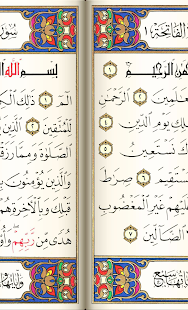 الفاتحة ١
ـمن الرحيم ١
ـلمين ٢ الرحمن
ـك نستعين ٥
ـستقيم ٦ صرط
عليهم غير المغضوب
الضالين ٧
سور
بسم الله ا
الم ١ ذلك الك
للمتقين ٢ الذين
الصلوة ومما رزقـ
والذين يؤمنون
قبلك وبالـ
هدى من ربهم